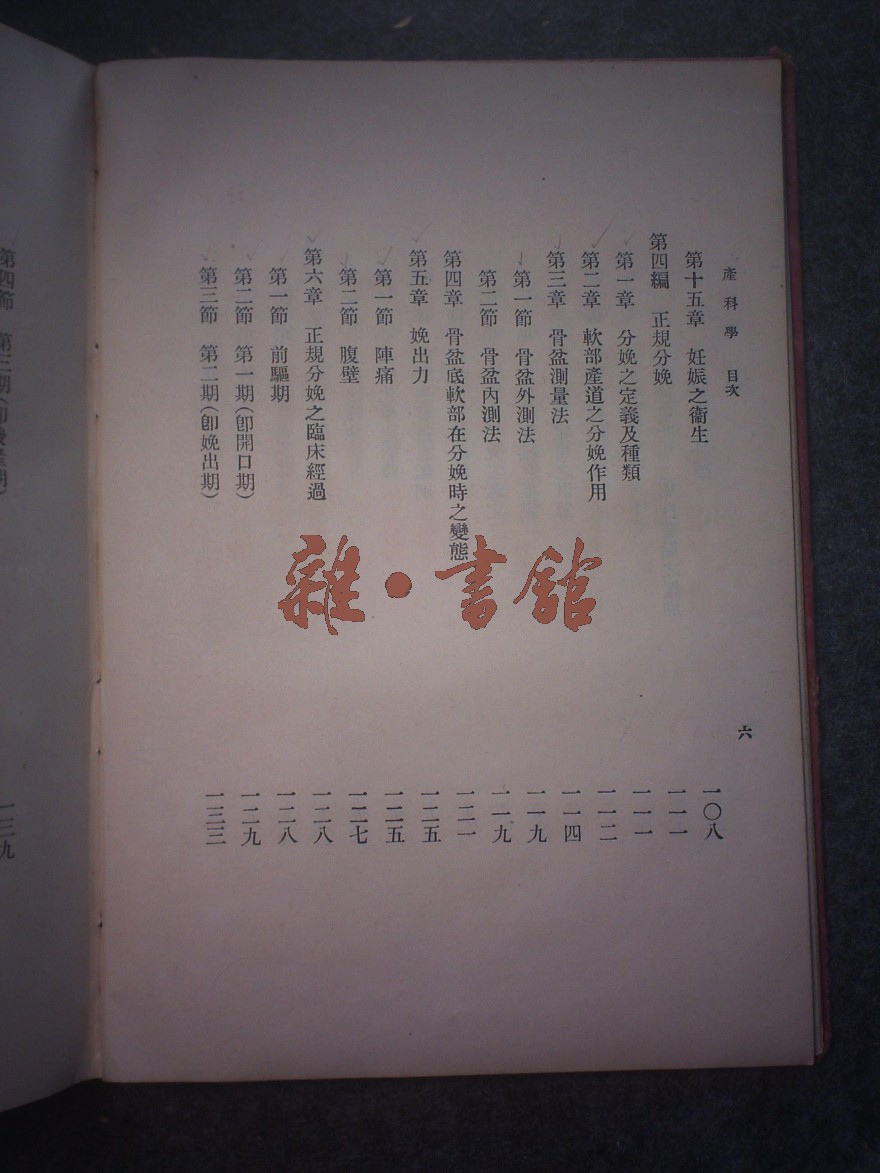 產科學 目次
六
第十五章 妊娠之衞生 一〇八
第四編 正規分娩 一一一
第一章 分娩之定義及種類 一一一
第二章 軟部產道之分娩作用 一一二
第三章 骨盆測量法 一一四
第一節 骨盆外測法 一一九
第二節 骨盆內測法 一一九
第四章 骨盆底軟部在分娩時之變態 一二一
第五章 娩出力 一二五
第一節 陣痛 一二五
第二節 腹壁 一二七
第六章 正規分娩之臨床經過 一二八
第一節 前驅期 一二八
第二節 第一期(卽開口期) 一二九
第三節 第二期(卽娩出期) 一三三
第四節 第三期(卽後產期) 一三九
雜·書館